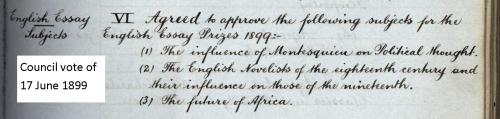 English Essay
Subjects
VI Agreed to approve the following subjects for the
English Essay Prizes 1899:-
(1) The influence of Montesquieu on Political thought.
(2) The English Novelists of the eighteenth century and
their influence on those of the nineteenth.
(3) The future of Africa.
Council vote of
17 June 1899